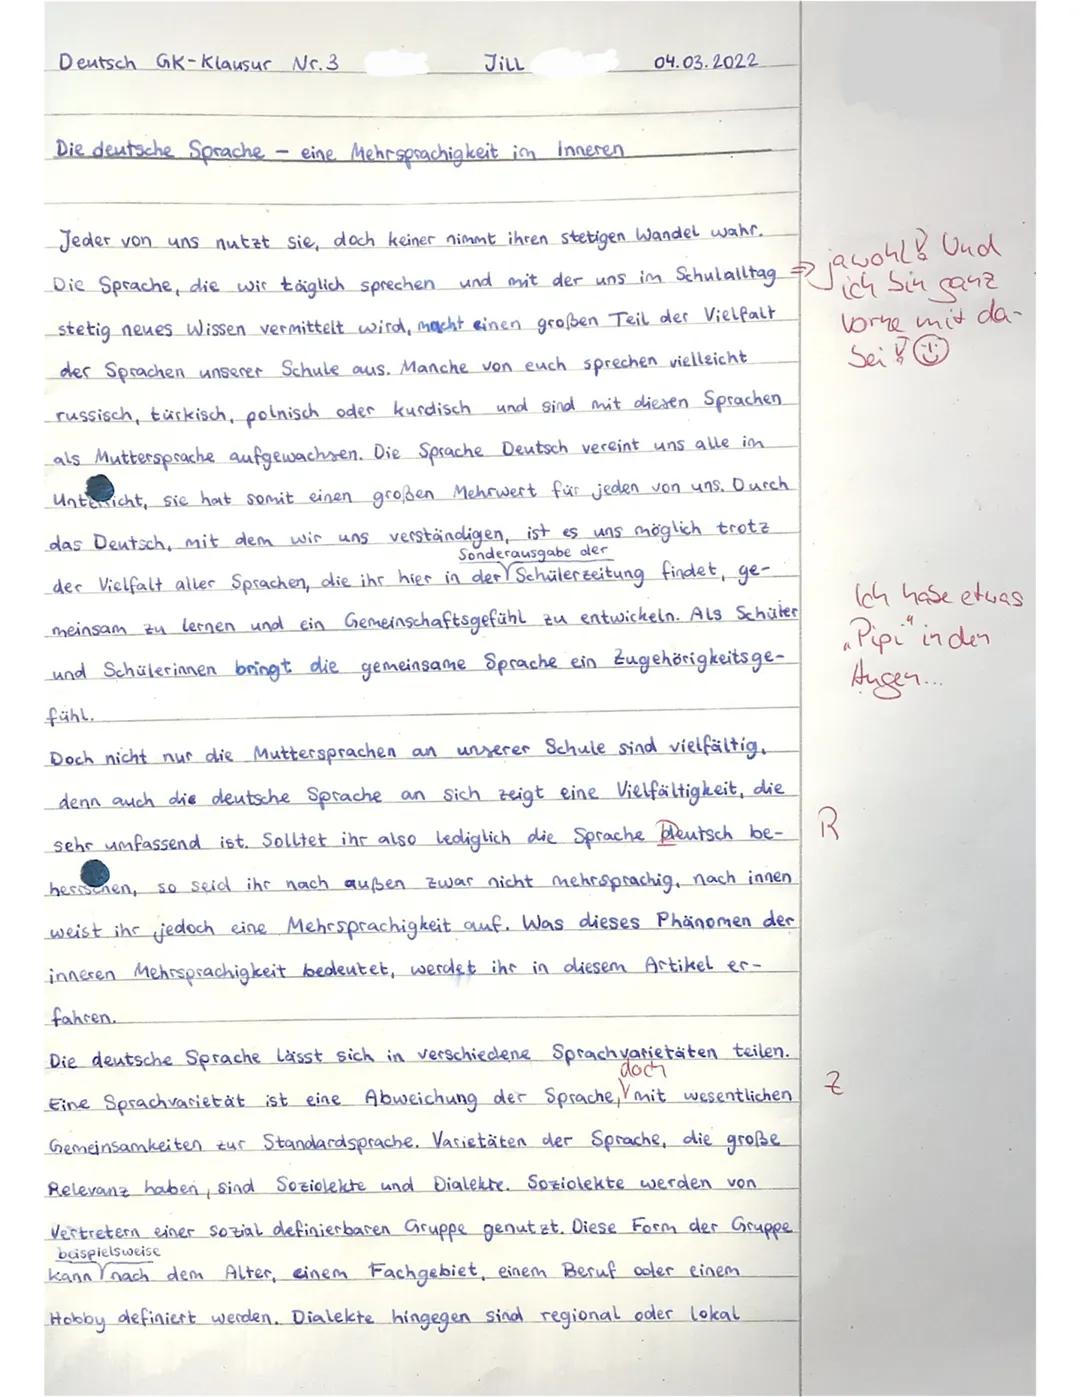 Deutsch GK-Klausur Nr. 3 Jill 04.03.2022
Die deutsche Sprache – eine Mehrsprachigkeit im Inneren
Jeder von uns nutzt sie, doch keiner nimmt ihren stetigen Wandel wahr.
Die Sprache, die wir täglich sprechen und mit der uns im Schulalltag
stetig neues Wissen vermittelt wird, macht einen großen Teil der Vielfalt
der Sprachen unserer Schule aus. Manche von euch sprechen vielleicht
russisch, türkisch, polnisch oder kurdisch und sind mit diesen Sprachen
als Muttersprache aufgewachsen. Die Sprache Deutsch vereint uns alle im
Unterricht, sie hat somit einen großen Mehrwert für jeden von uns. Durch
das Deutsch, mit dem wir uns verständigen, ist es uns möglich trotz
Sonderausgabe der
der Vielfalt aller Sprachen, die ihr hier in der Schülerzeitung findet, ge-
meinsam zu lernen und ein Gemeinschaftsgefühl zu entwickeln. Als Schüler
und Schülerinnen bringt die gemeinsame Sprache ein Zugehörigkeitsge-
fühl.
Doch nicht nur die Muttersprachen an unserer Schule sind vielfältig,
denn auch die deutsche Sprache an sich zeigt eine Vielfältigkeit, die
sehr umfassend ist. Solltet ihr also lediglich die Sprache Deutsch be-
herrschen, so seid ihr nach außen zwar nicht mehrsprachig, nach innen
weist ihr jedoch eine Mehrsprachigkeit auf. Was dieses Phänomen der
inneren Mehrsprachigkeit bedeutet, werdet ihr in diesem Artikel er-
fahren.
Die deutsche Sprache lässt sich in verschiedene Sprachvarietäten teilen.
doch
Eine Sprachvarietät ist eine Abweichung der Sprache, mit wesentlichen
Gemeinsamkeiten zur Standardsprache. Varietäten der Sprache, die große
Relevanz haben, sind Soziolekte und Dialekte. Soziolekte werden von
Vertretern einer sozial definierbaren Gruppe genutzt. Diese Form der Gruppe
beispielsweise
kann nach dem Alter, einem Fachgebiet, einem Beruf oder einem
Hobby definiert werden. Dialekte hingegen sind regional oder lokal
=> jawohl! Und
ich bin ganz
vorne mit da-
bei!
Ich habe etwas
"Pipi" in den
Augen...
R
Z